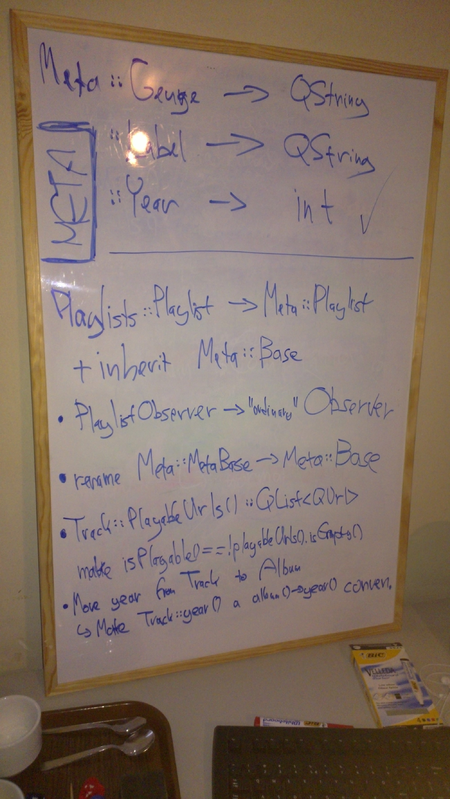 Meta::Genre → QString
::Label → QString
META
::Year → int ✓
Playlists::Playlist → Meta::Playlist
+ inherit Meta::Base
• PlaylistObserver → "ordinary" Observer
• rename Meta::MetaBase → Meta::Base
• Track::PlayableUrls() :: QList<QUrl>
make isPlayable() == !playableUrls().isEmpty()
• Move year from Track to Album
↳ Make Track::year() a album()→year() conven.
BIC
Velleda